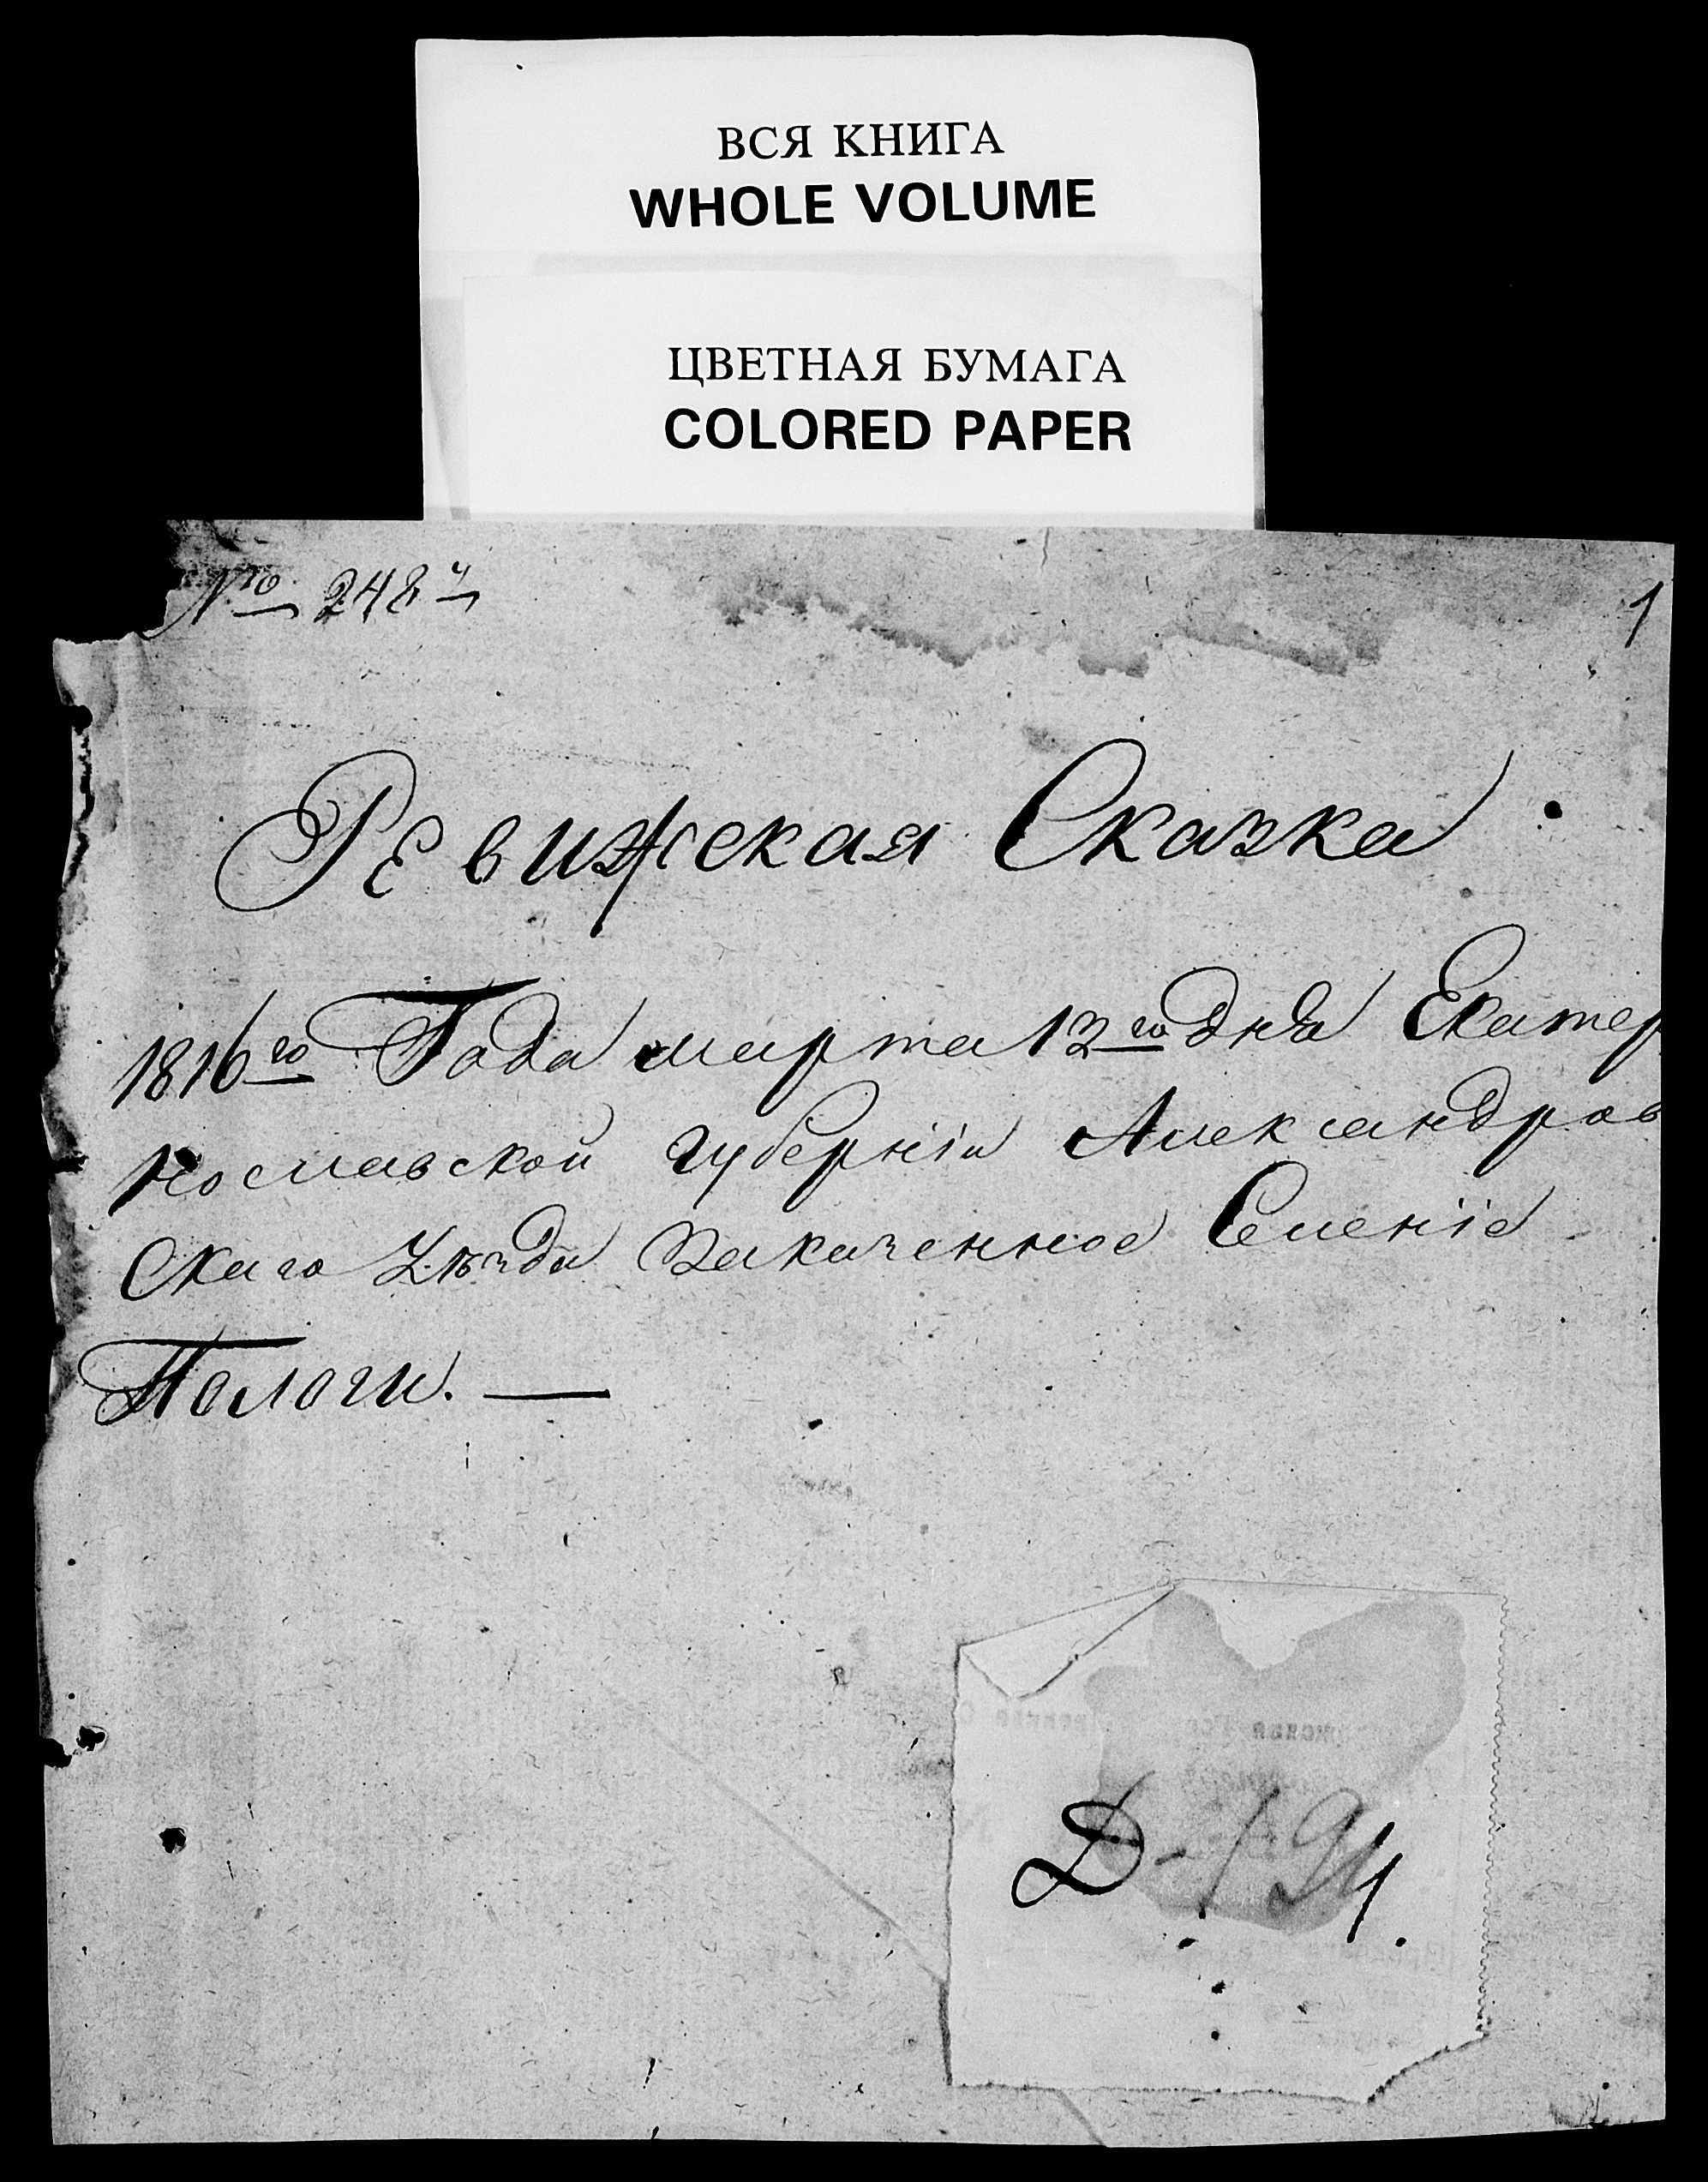 ВСЯ КНИГА
WHOLE VOLUME
ЦВЕТНАЯ БУМАГА
COLORED PAPER
№ 248й
1
Ревижская Сказка
1816го Года марта 13го дня Екатер
нославской губерніи Александров
Скаго Уѣзда Селеніе
Пологи. —
Д-194.